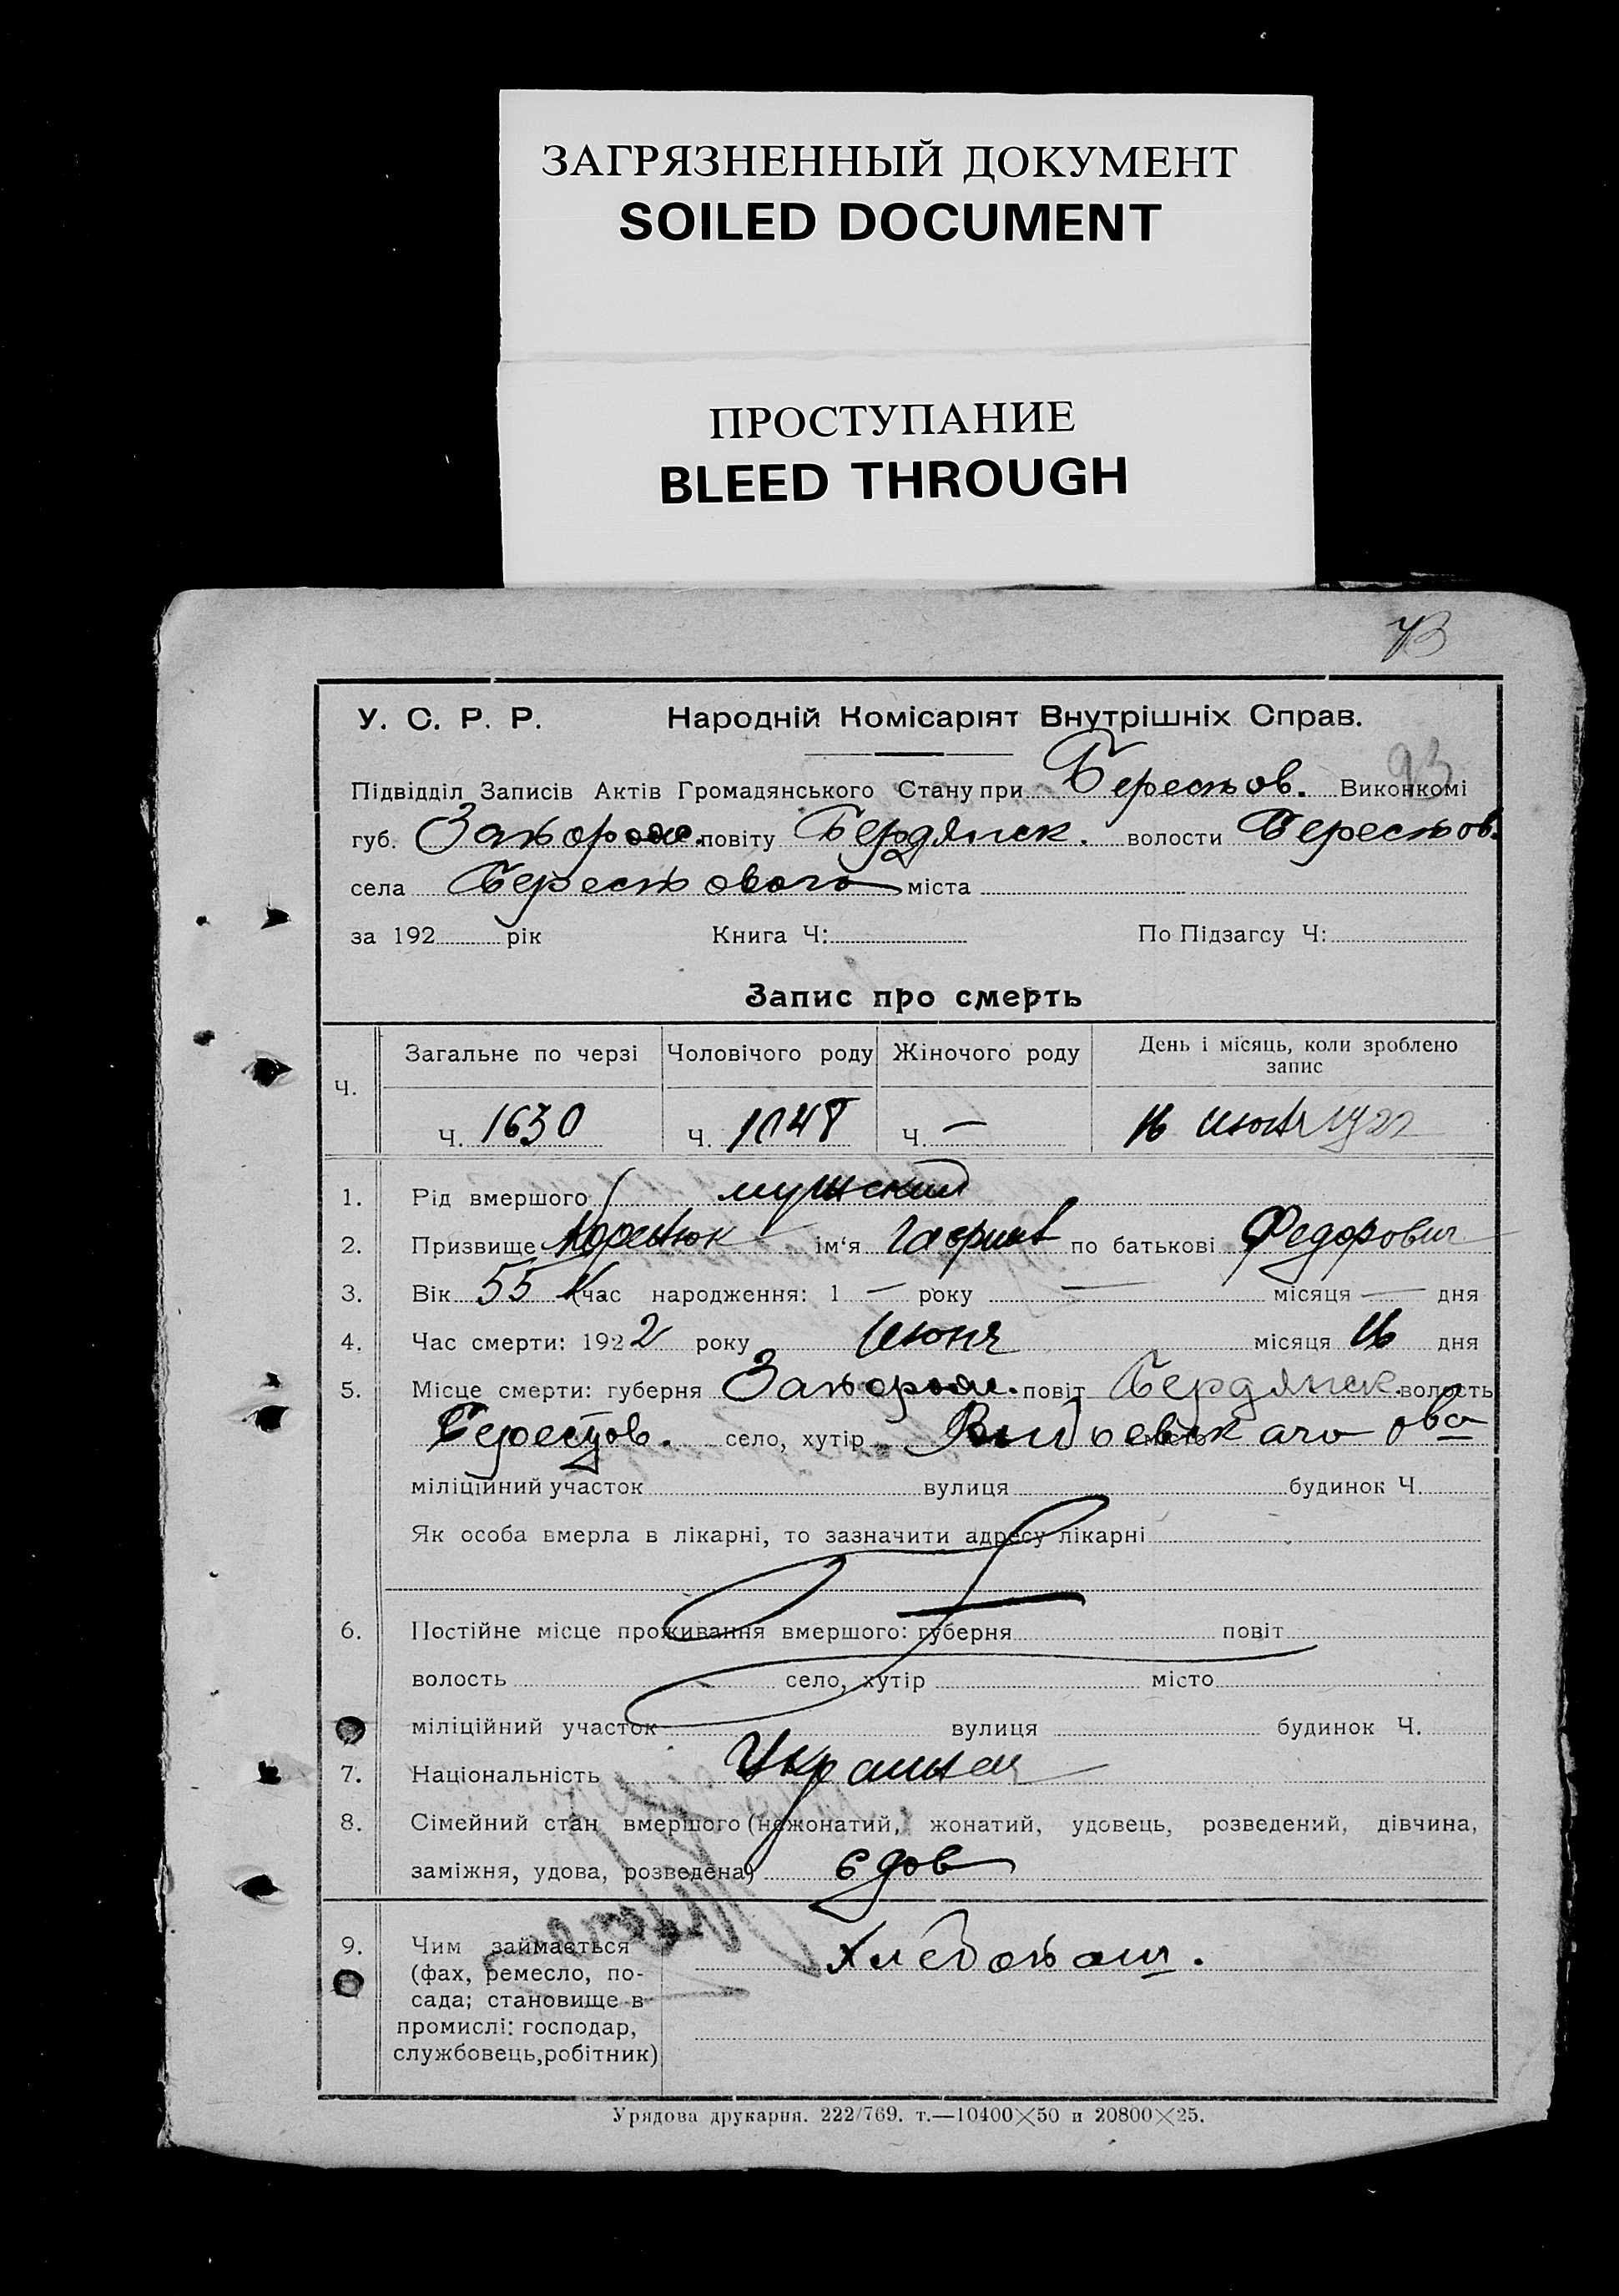 ЗАГРЯЗНЕННЫЙ ДОКУМЕНТ
SOILED DOCUMENT
ПРОСТУПАНИЕ
BLEED THROUGH
93
У. С. Р. Р. Народній Комісаріят Внутрішніх Справ.
Підвідділ Записів Актів Громадянського Стану при Берестов. Виконкомі
губ. Запорож. повіту Бердянск. волости Берестов.
села Берестового міста
за 192 рік Книга Ч: По Підзагсу Ч:
Запис про смерть
Ч. Загальне по черзі Чоловічого роду Жіночого роду День і місяць, коли зроблено запис
Ч. 1630 Ч. 1048 Ч. — 16 июня 1922
1. Рід вмершого мужский
2. Призвище ім'я по батькові Федорович
3. Вік 55 час народження: 1 — року — місяця — дня
4. Час смерти: 1922 року Июня місяця 16 дня
5. Місце смерти: губерня Запорож. повіт Бердянск. волость
Берестов. село, хутір місто ова
міліційний участок вулиця будинок Ч.
Як особа вмерла в лікарні, то зазначити адресу лікарні
6. Постійне місце проживання вмершого: губерня повіт
волость село, хутір місто
міліційний участок вулиця будинок Ч.
7. Національність
8. Сімейний стан вмершого (нежонатий, жонатий, удовець, розведений, дівчина,
заміжня, удова, розведена) вдов
9. Чим займається Хлебопаш.
(фах, ремесло, по-
сада; становище в
промислі: господар,
службовець, робітник)
Урядова друкарня. 222/769. т.—10400×50 и 20800×25.